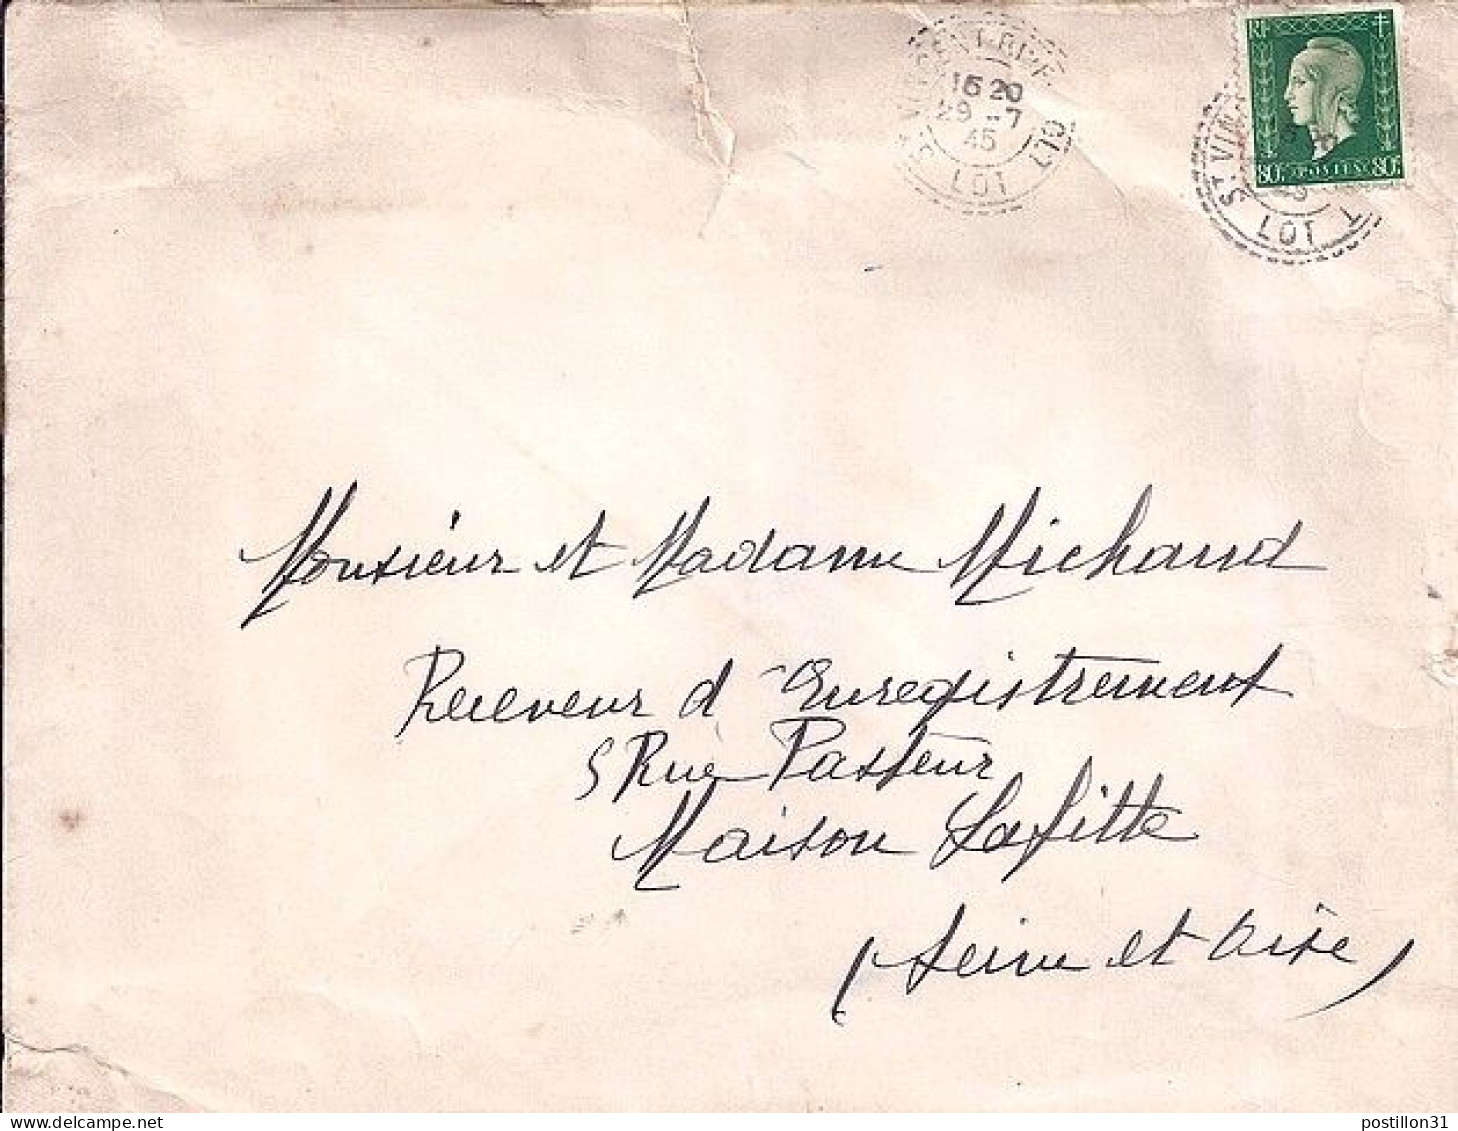 RF
80c POSTES 80c
16 20
29 -7
45
LOT
LOT
Monsieur et Madame Michaud
Receveur d'Enregistrement
5 Rue Pasteur
Maison Lafitte
(Seine et Oise)
postillon31